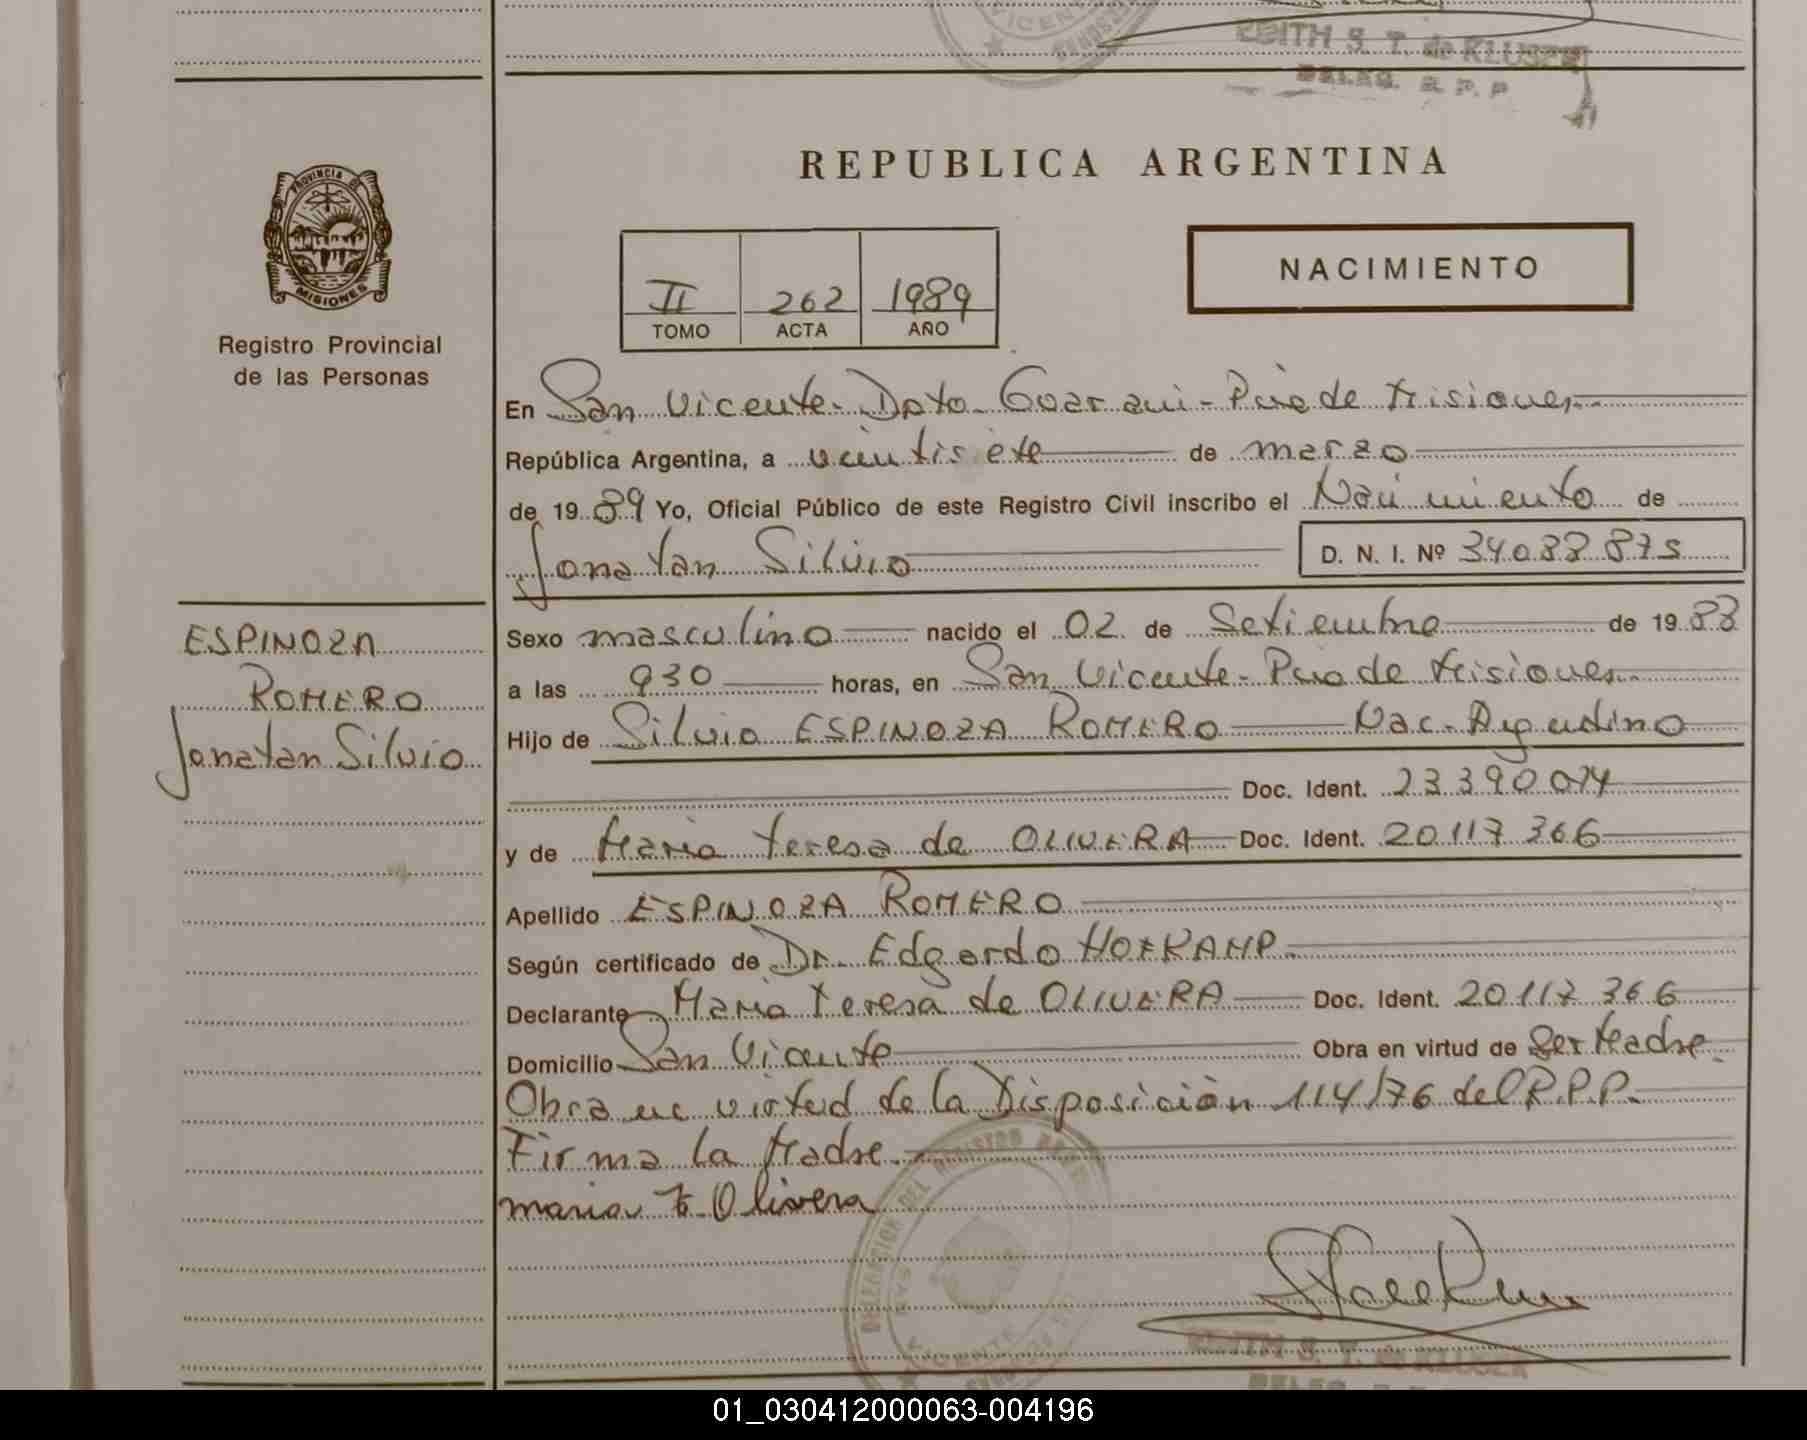 VICENTE
EDITH S. T. de KLUSER
DELEG. R. P. P
REPUBLICA ARGENTINA
PROVINCIA DE
MISIONES
Registro Provincial
de las Personas
II 262 1989
TOMO ACTA AÑO
NACIMIENTO
En San Vicente - Dpto. Guarani - Pcia de Misiones.
República Argentina, a veintisiete de marzo
de 1989 Yo, Oficial Público de este Registro Civil inscribo el Nacimiento de
Jonatan Silvio D. N. I. Nº
ESPINOZA
ROMERO
Jonatan Silvio
Sexo masculino nacido el 02 de Setiembre de 1988
a las 930 horas, en San Vicente - Pcia de Misiones.
Hijo de Silvio ESPINOZA ROMERO Nac. Argentino
Doc. Ident. 23390074
y de Maria Teresa de OLIVERA Doc. Ident. 20.117.366
Apellido ESPINOZA ROMERO
Según certificado de Dr. Edgardo HOFKAMP.
Declarante Maria Teresa de OLIVERA Doc. Ident. 20.117.366
Domicilio San Vicente Obra en virtud de Ser Madre.
Obra en virtud de la Disposición 114/76 del R.P.P.
Firma la Madre.
maria T. Olivera
DELEGACION DEL REGISTRO
VICENTE
EDITH S. T. de KLUSER
01_030412000063-004196